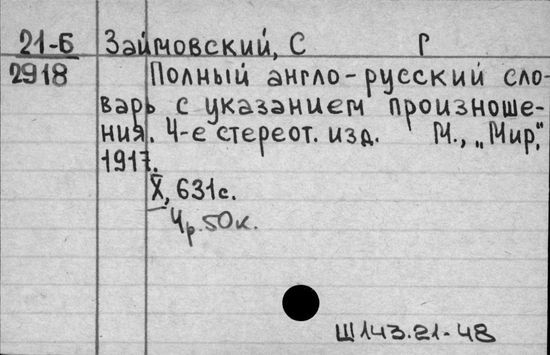 21-Б Займовский, С Г
2918 Полный англо-русский сло-
варь с указанием произноше-
ния. 4-е стереот. изд. М., „Мир",
1917.
X, 631с.
4р.50к.
Ш143.21-48